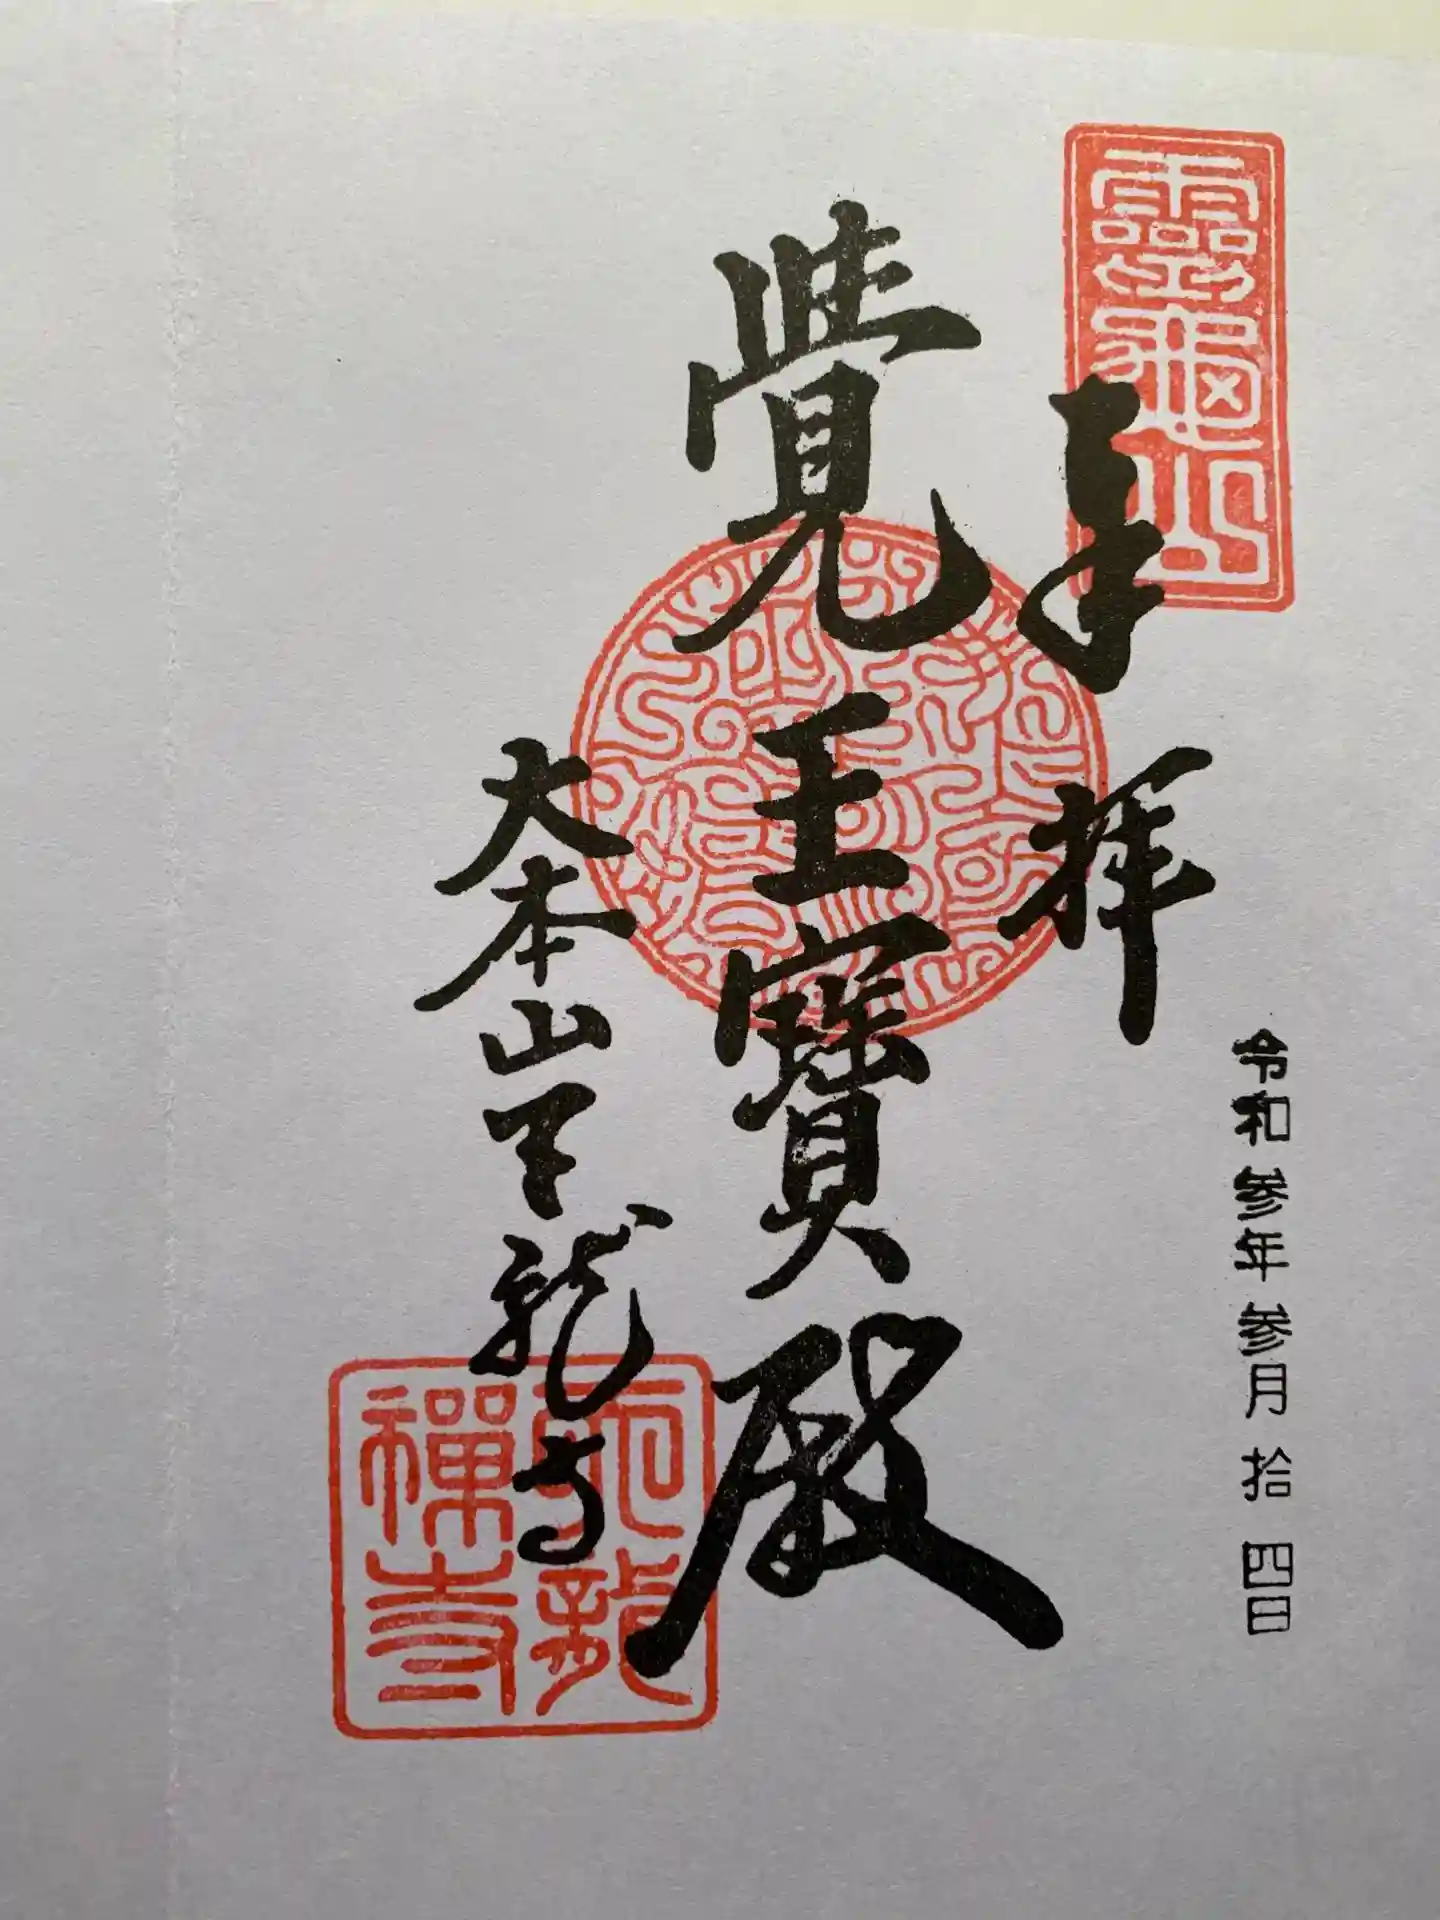 靈龜山
奉拝
令和参年参月拾四日
覺王寶殿
大本山天龍寺
天龍
禅寺